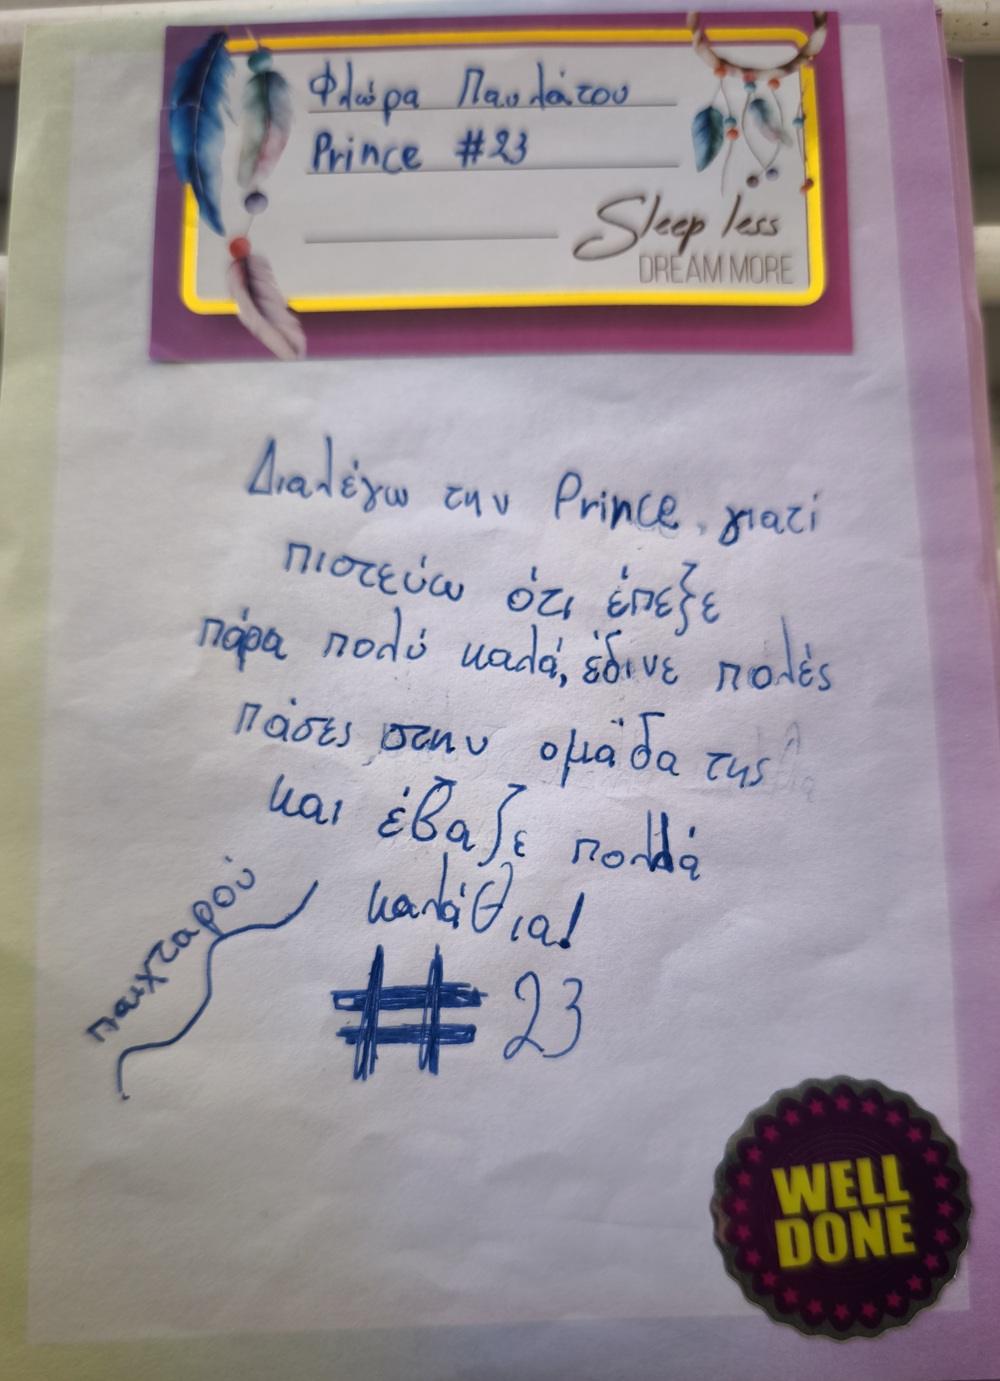 Φλώρα Παυλάτου
Prince #23
Sleep less
DREAM MORE
Διαλέγω την Prince, γιατί
πιστεύω ότι έπεξε
πάρα πολύ καλά, έδινε πολές
πάσες στην ομάδα της
και έβαζε πολλά
καλάθια!
παιχταρού
# 23
WELL
DONE